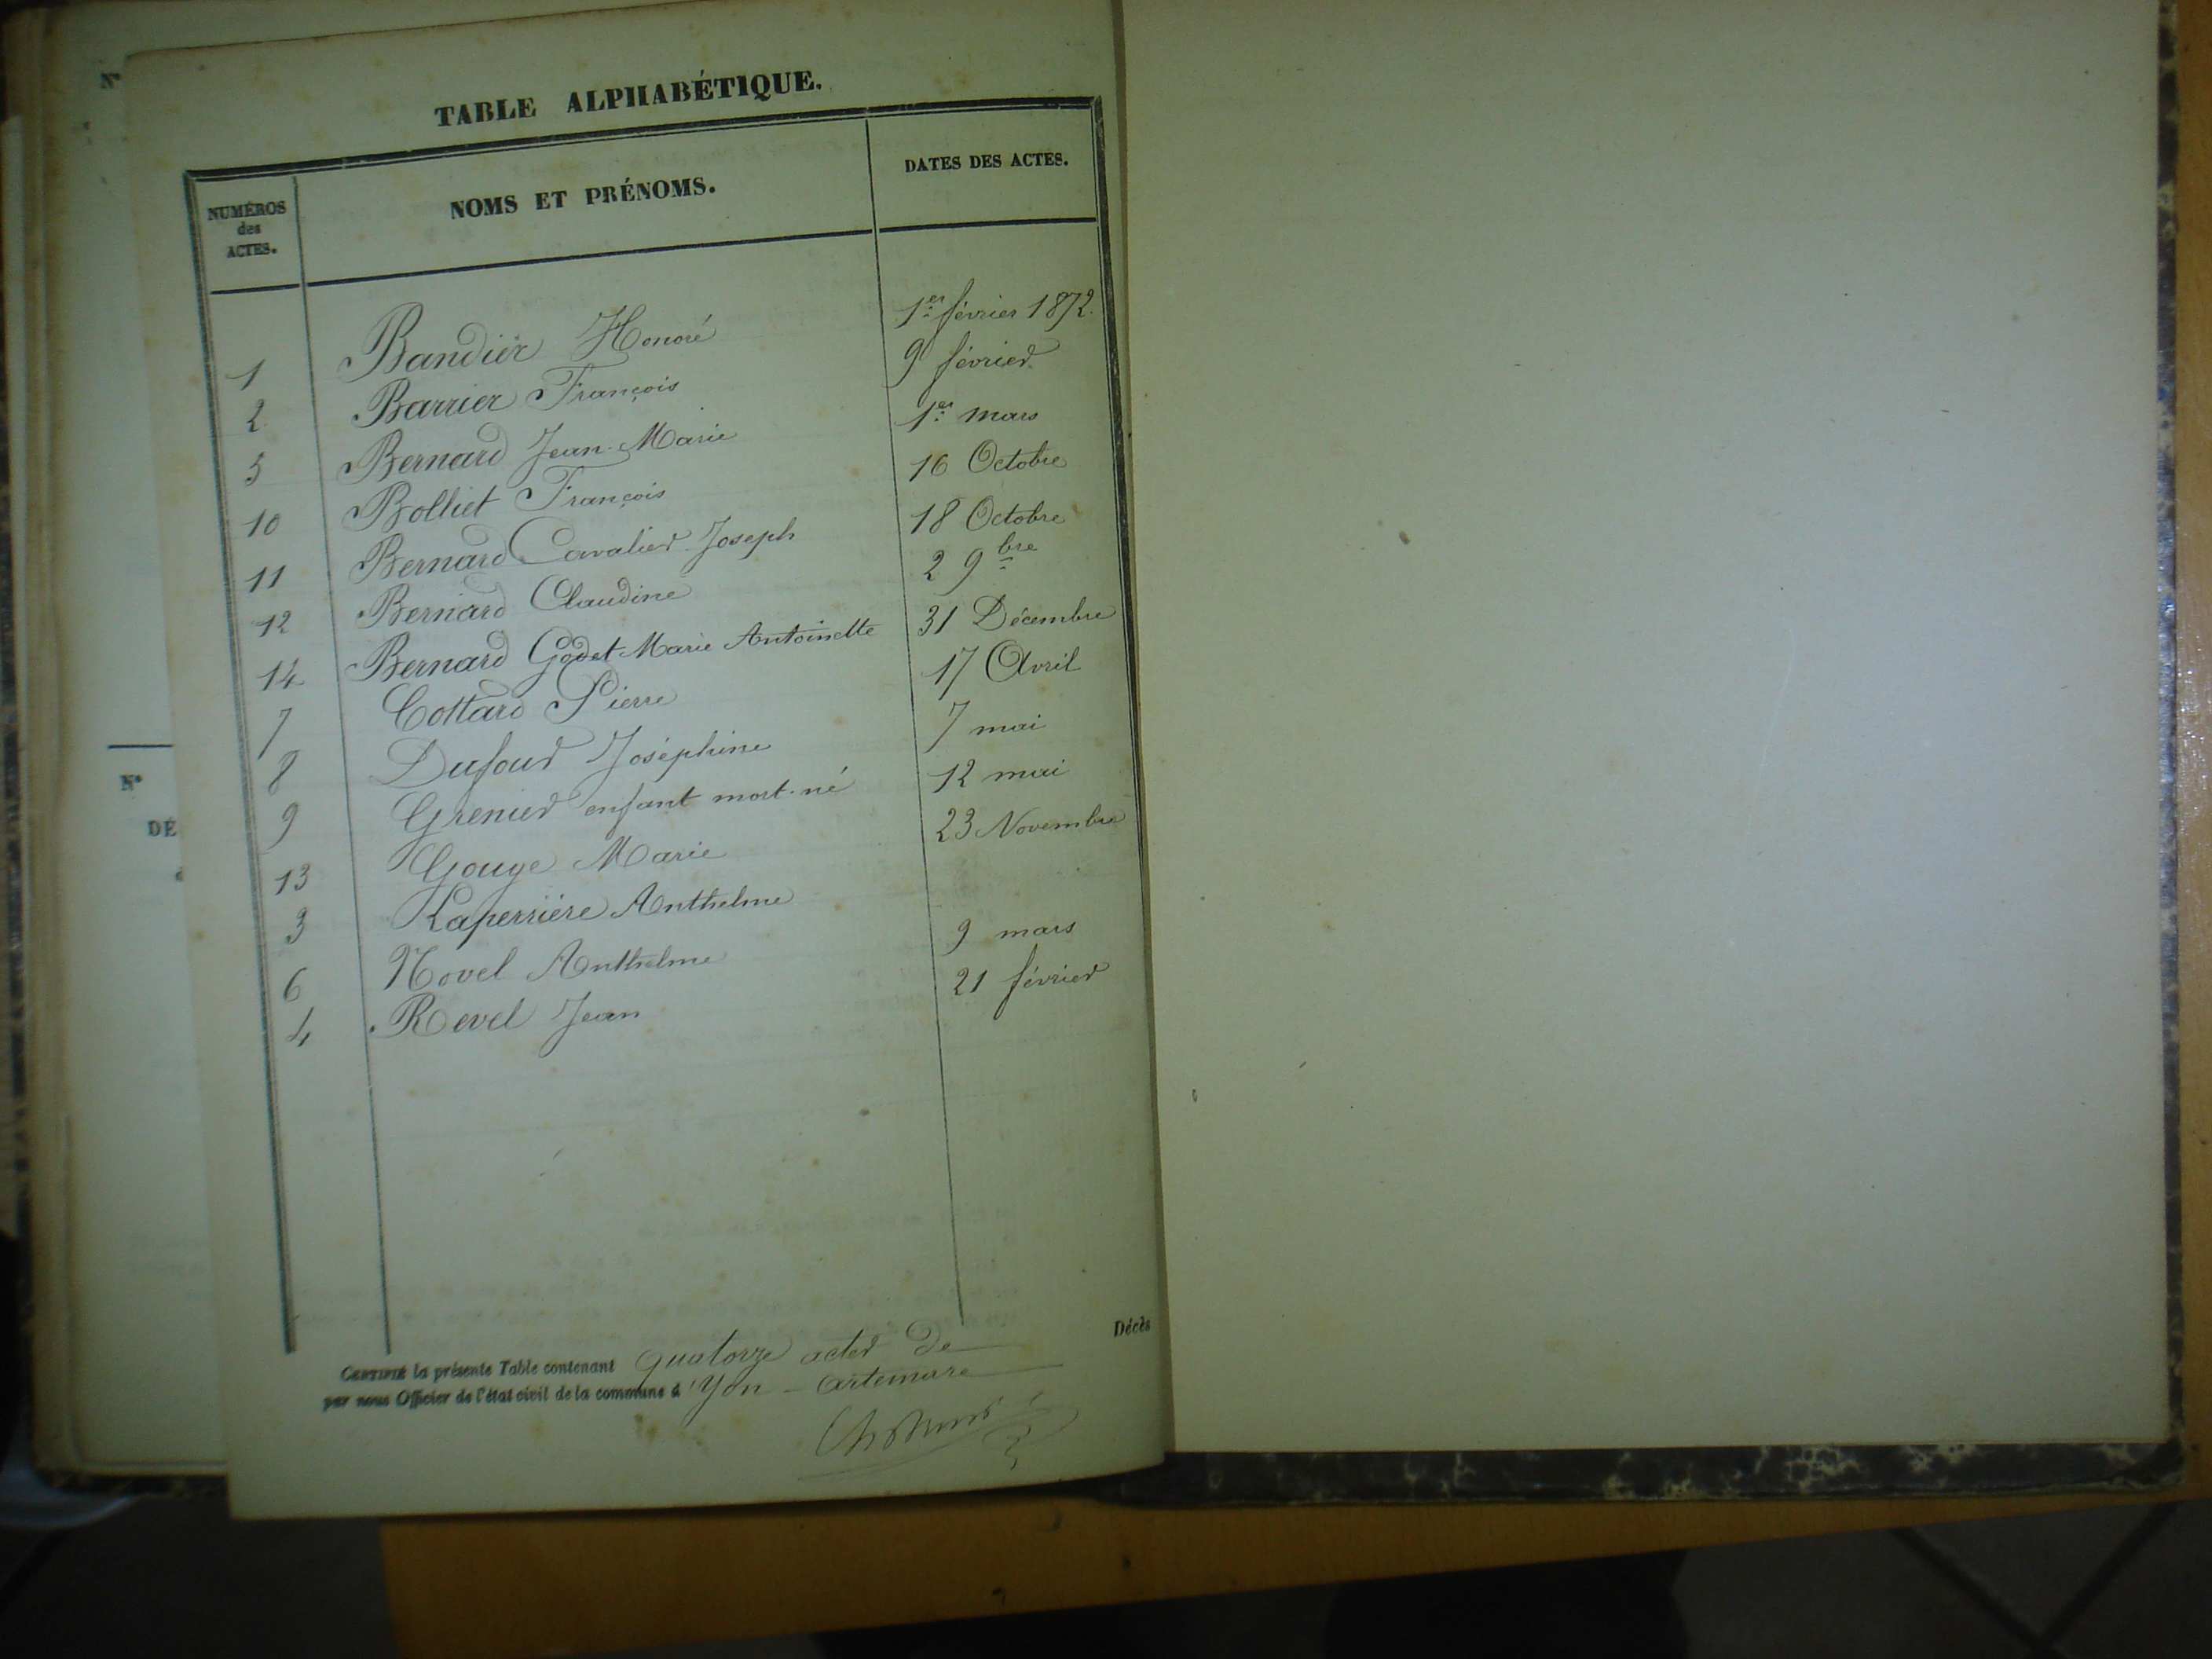 N°
TABLE ALPHABÉTIQUE.
NUMÉROS des ACTES. NOMS ET PRÉNOMS. DATES DES ACTES.
1 Bandier Honoré 1er février 1872.
2 Barrier François 9 février
5 Bernard Jean-Marie 1er mars
10 Bolliet François 16 Octobre
11 Bernard Cavalier Joseph 18 Octobre
12 Bernard Claudine 2 9bre
14 Bernard Godet Marie Antoinette 31 Décembre
7 Cottard Pierre 17 Avril
8 Dufour Joséphine 7 mai
9 Grenier enfant mort-né 12 mai
13 Gouge Marie 23 Novembre
3 Laperrière Anthelme
6 Novel Anthelme 9 mars
4 Revel Jean 21 février
N°
DÉ
CERTIFIÉ la présente Table contenant quatorze actes de Décès
par nous Officier de l'état civil de la commune d'Yon-artemare